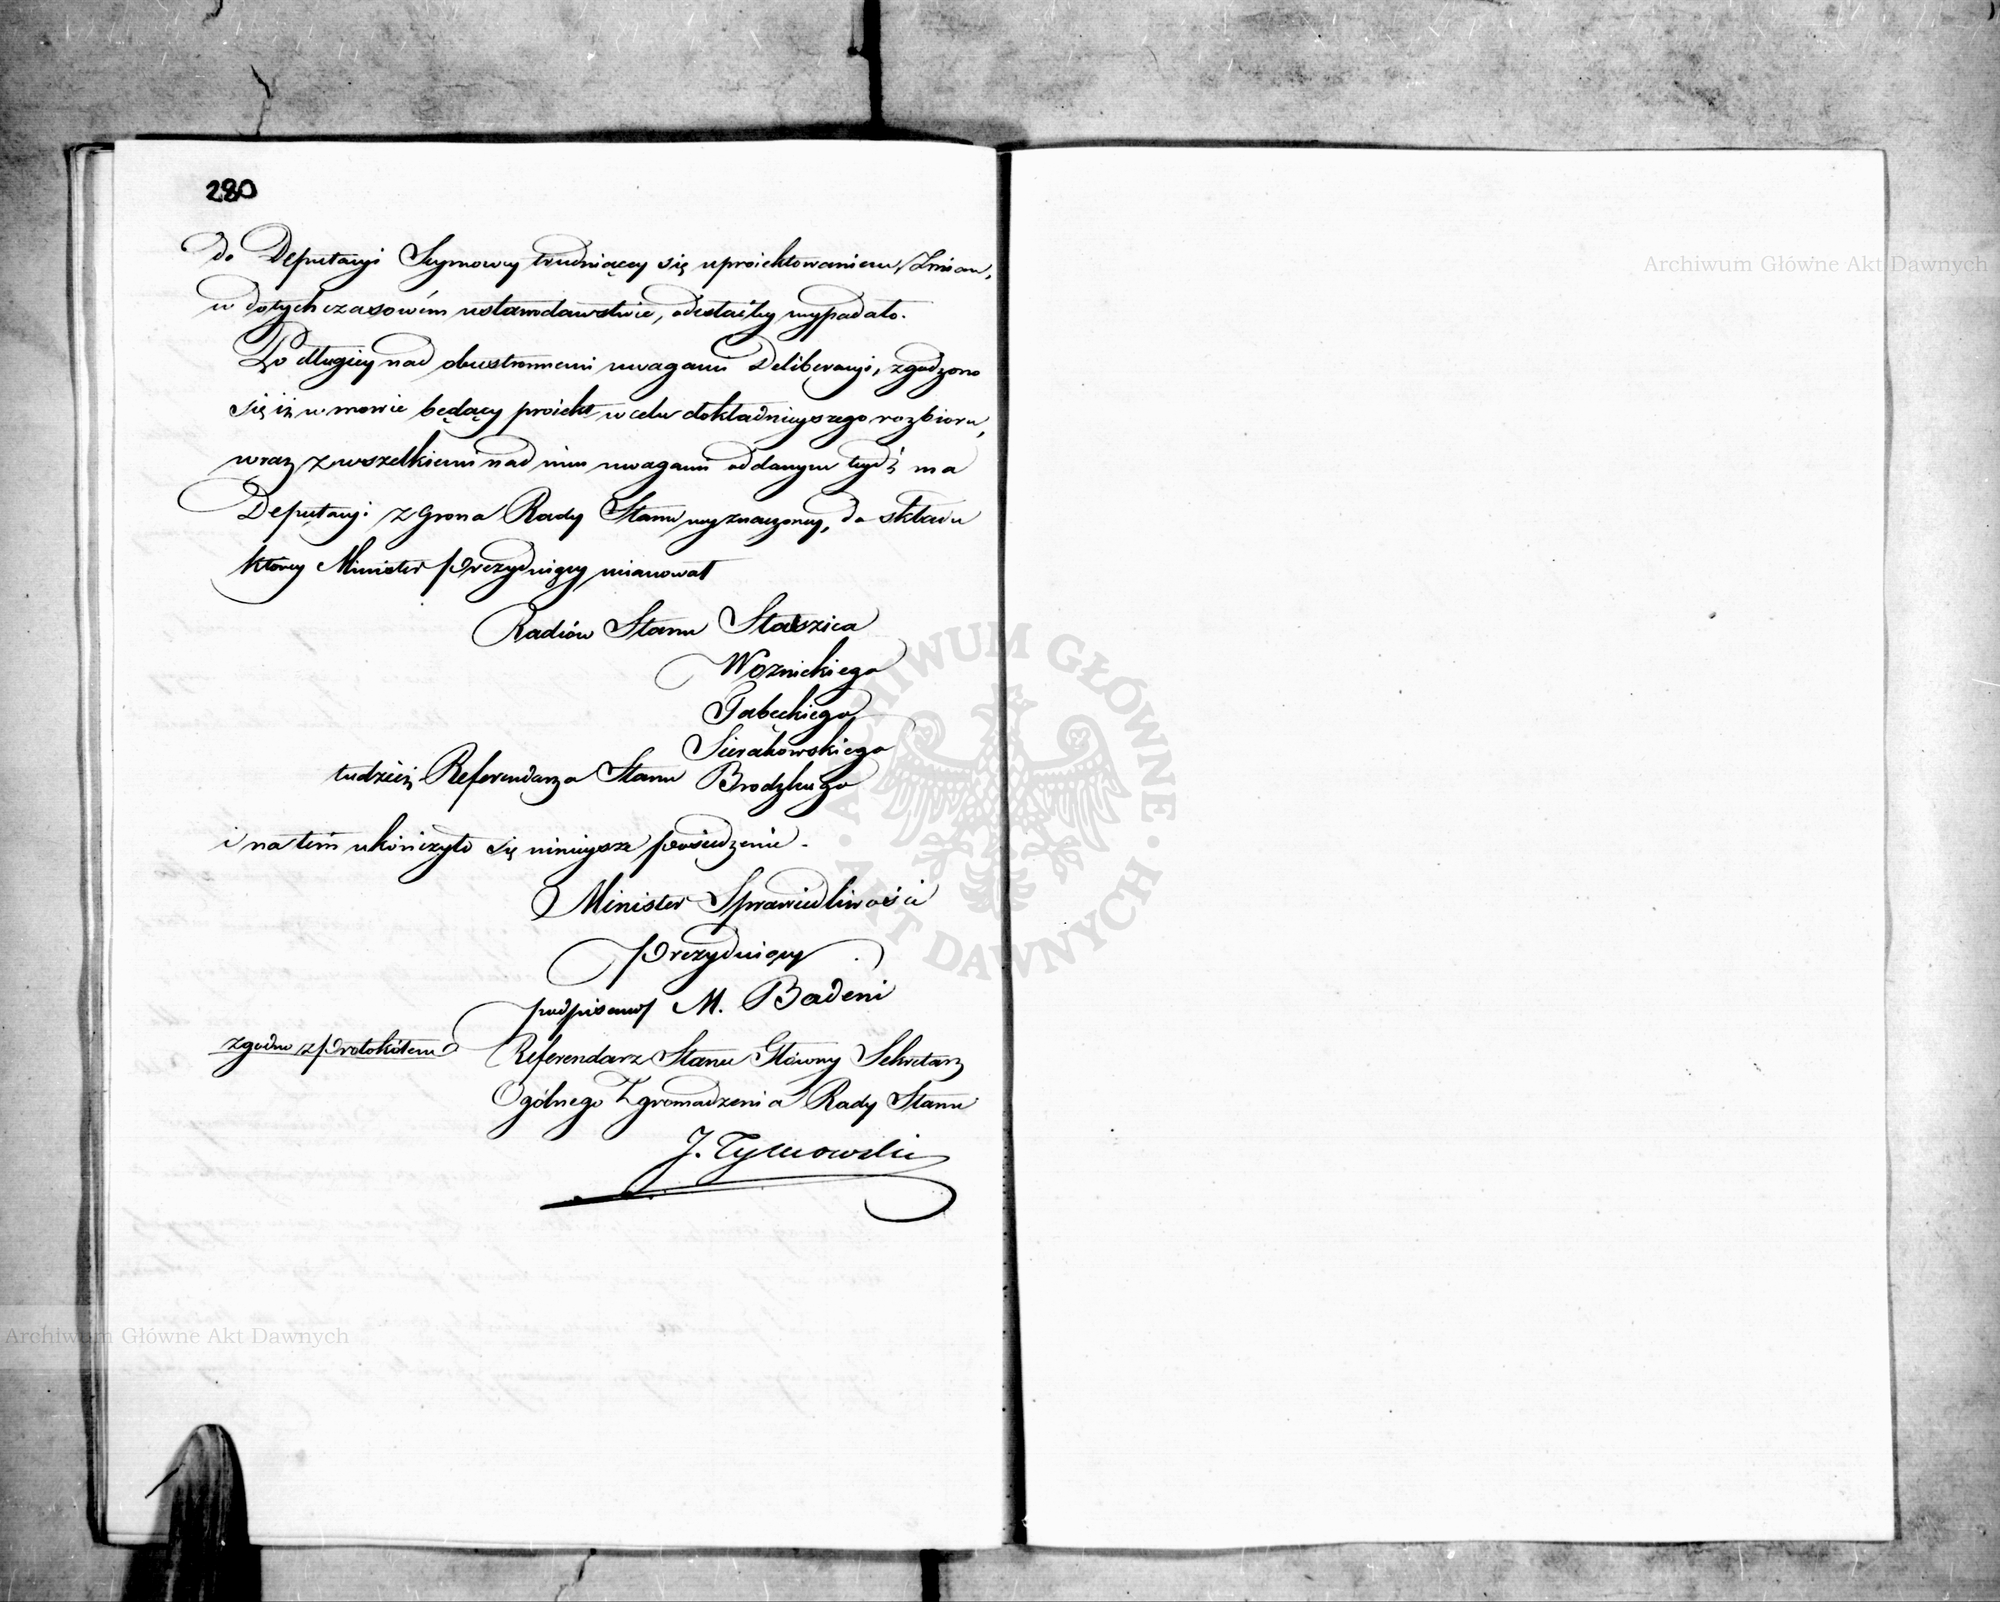 280
do Deputacyi Seymowey trudniącey się uproiektowaniem Zmian,
w dotychczasowém ustawodawstwie, odesłaćby wypadało.
Po długiey nad obustronnemi uwagami Deliberacyi, zgodzono
się iż w mowie będący proiekt w celu dokładnieyszego rozbioru,
wraz z wszelkiemi nad nim uwagami oddanym bydź ma
Deputacyi z grona Rady Stanu wyznaczoney, do składu
którey Minister Prezyduiący mianował
Radców Stanu Staszica
Woznickiego
Gabeckiego
Sierakowskiego
tudzież Referendarza Stanu Brodzkiego
i na tém ukończyło się ninieysze posiedzenie.
Minister Sprawiedliwości
Prezyduiący
podpisany M. Badeni
zgodno z Protokółem Referendarz Stanu Główny Sekretarz
Ogólnego Zgromadzenia Rady Stanu
J. Tymowski
Archiwum Główne Akt Dawnych
ARCHIWUM GŁÓWNE · AKT DAWNYCH ·
Archiwum Główne Akt Dawnych